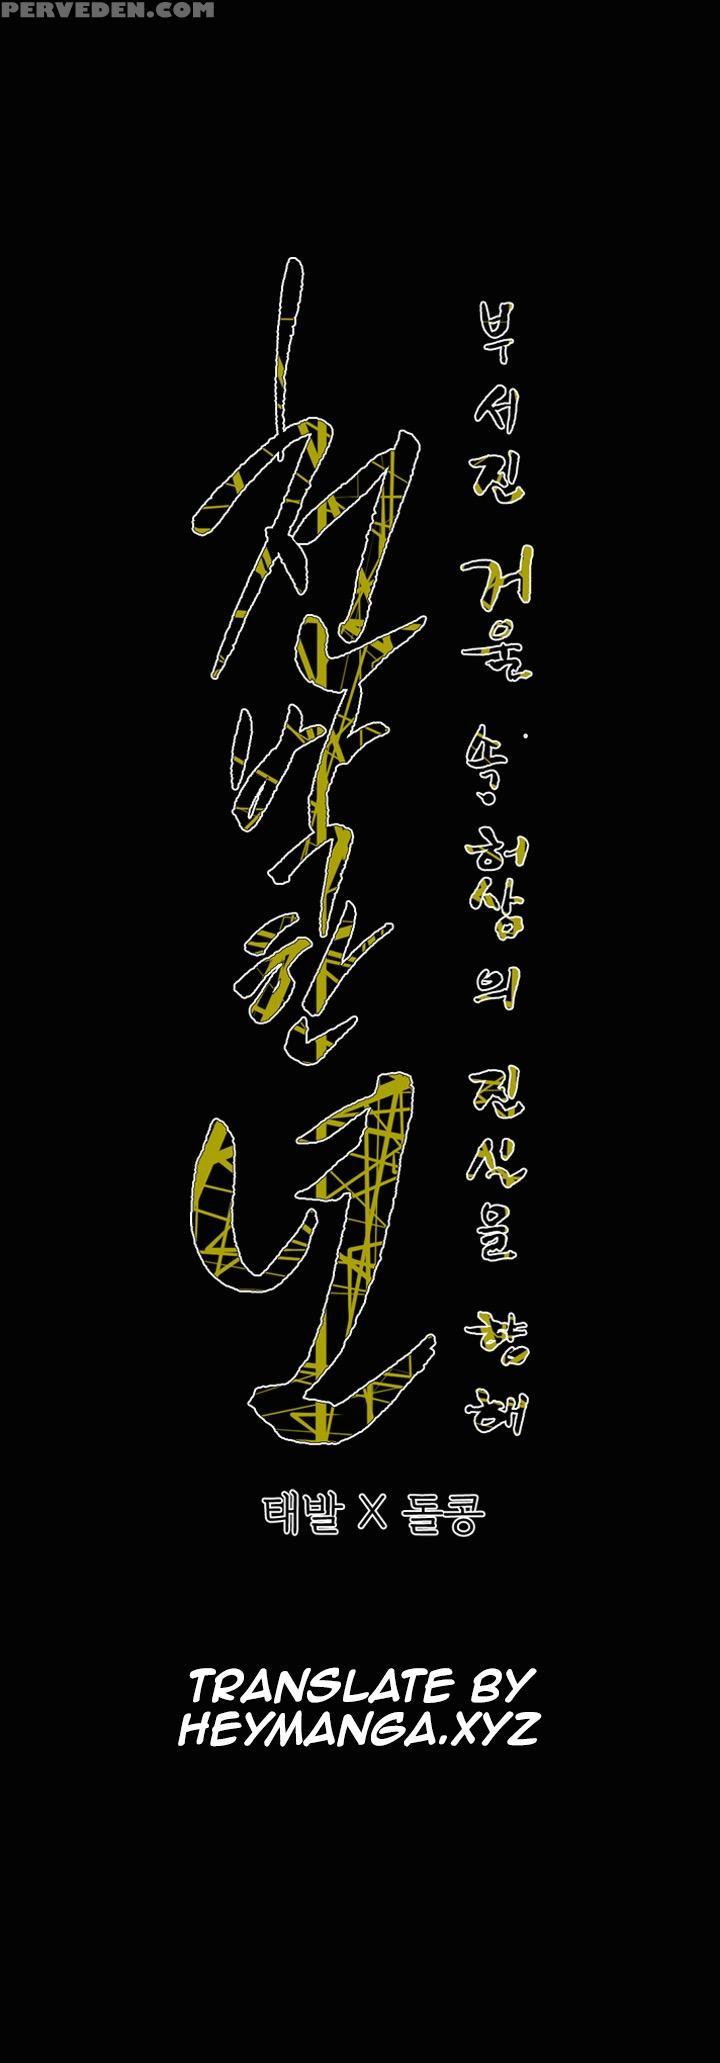 PERVEDEN.COM
천박한 년
부서진 거울 속, 허상의 진실을 향해
태발 X 돌콩
TRANSLATE BY
HEYMANGA.XYZ